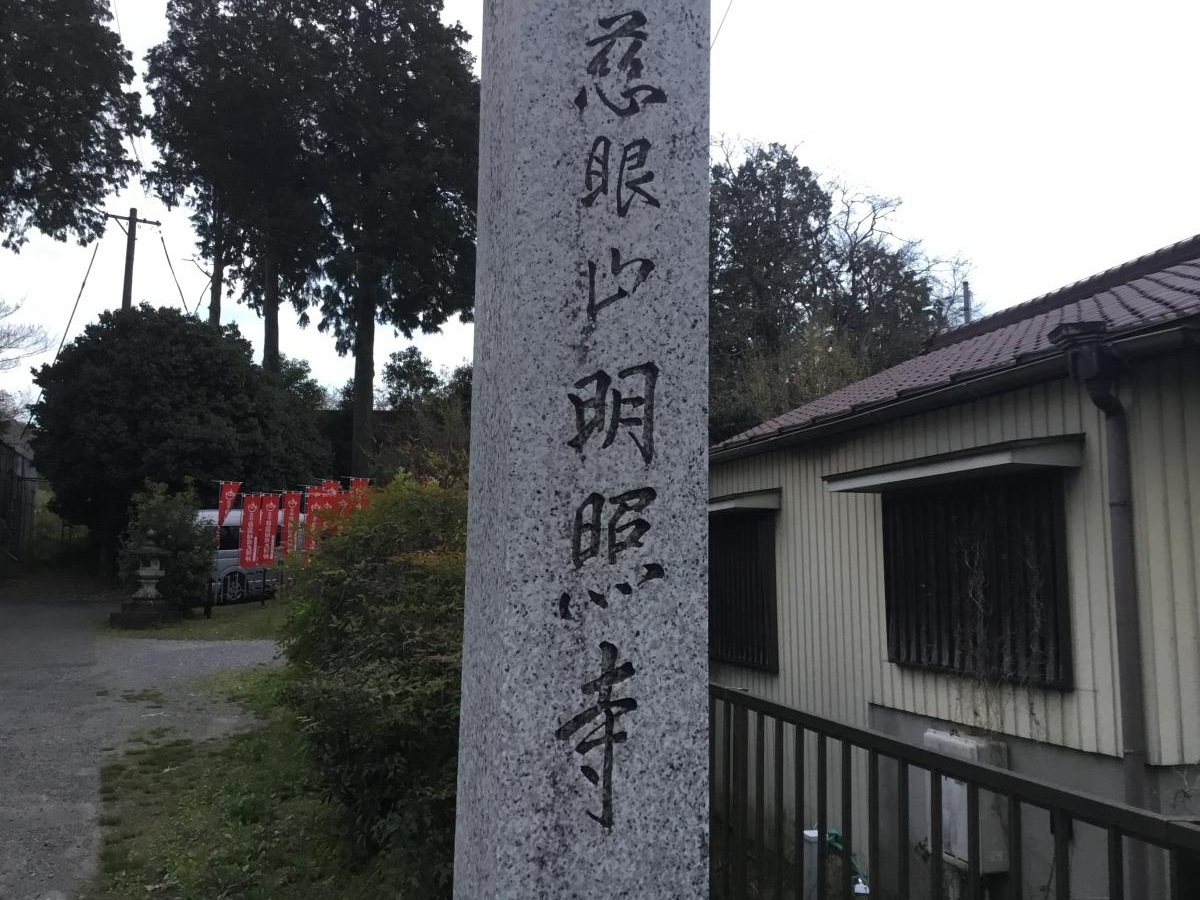 慈眼山明照寺